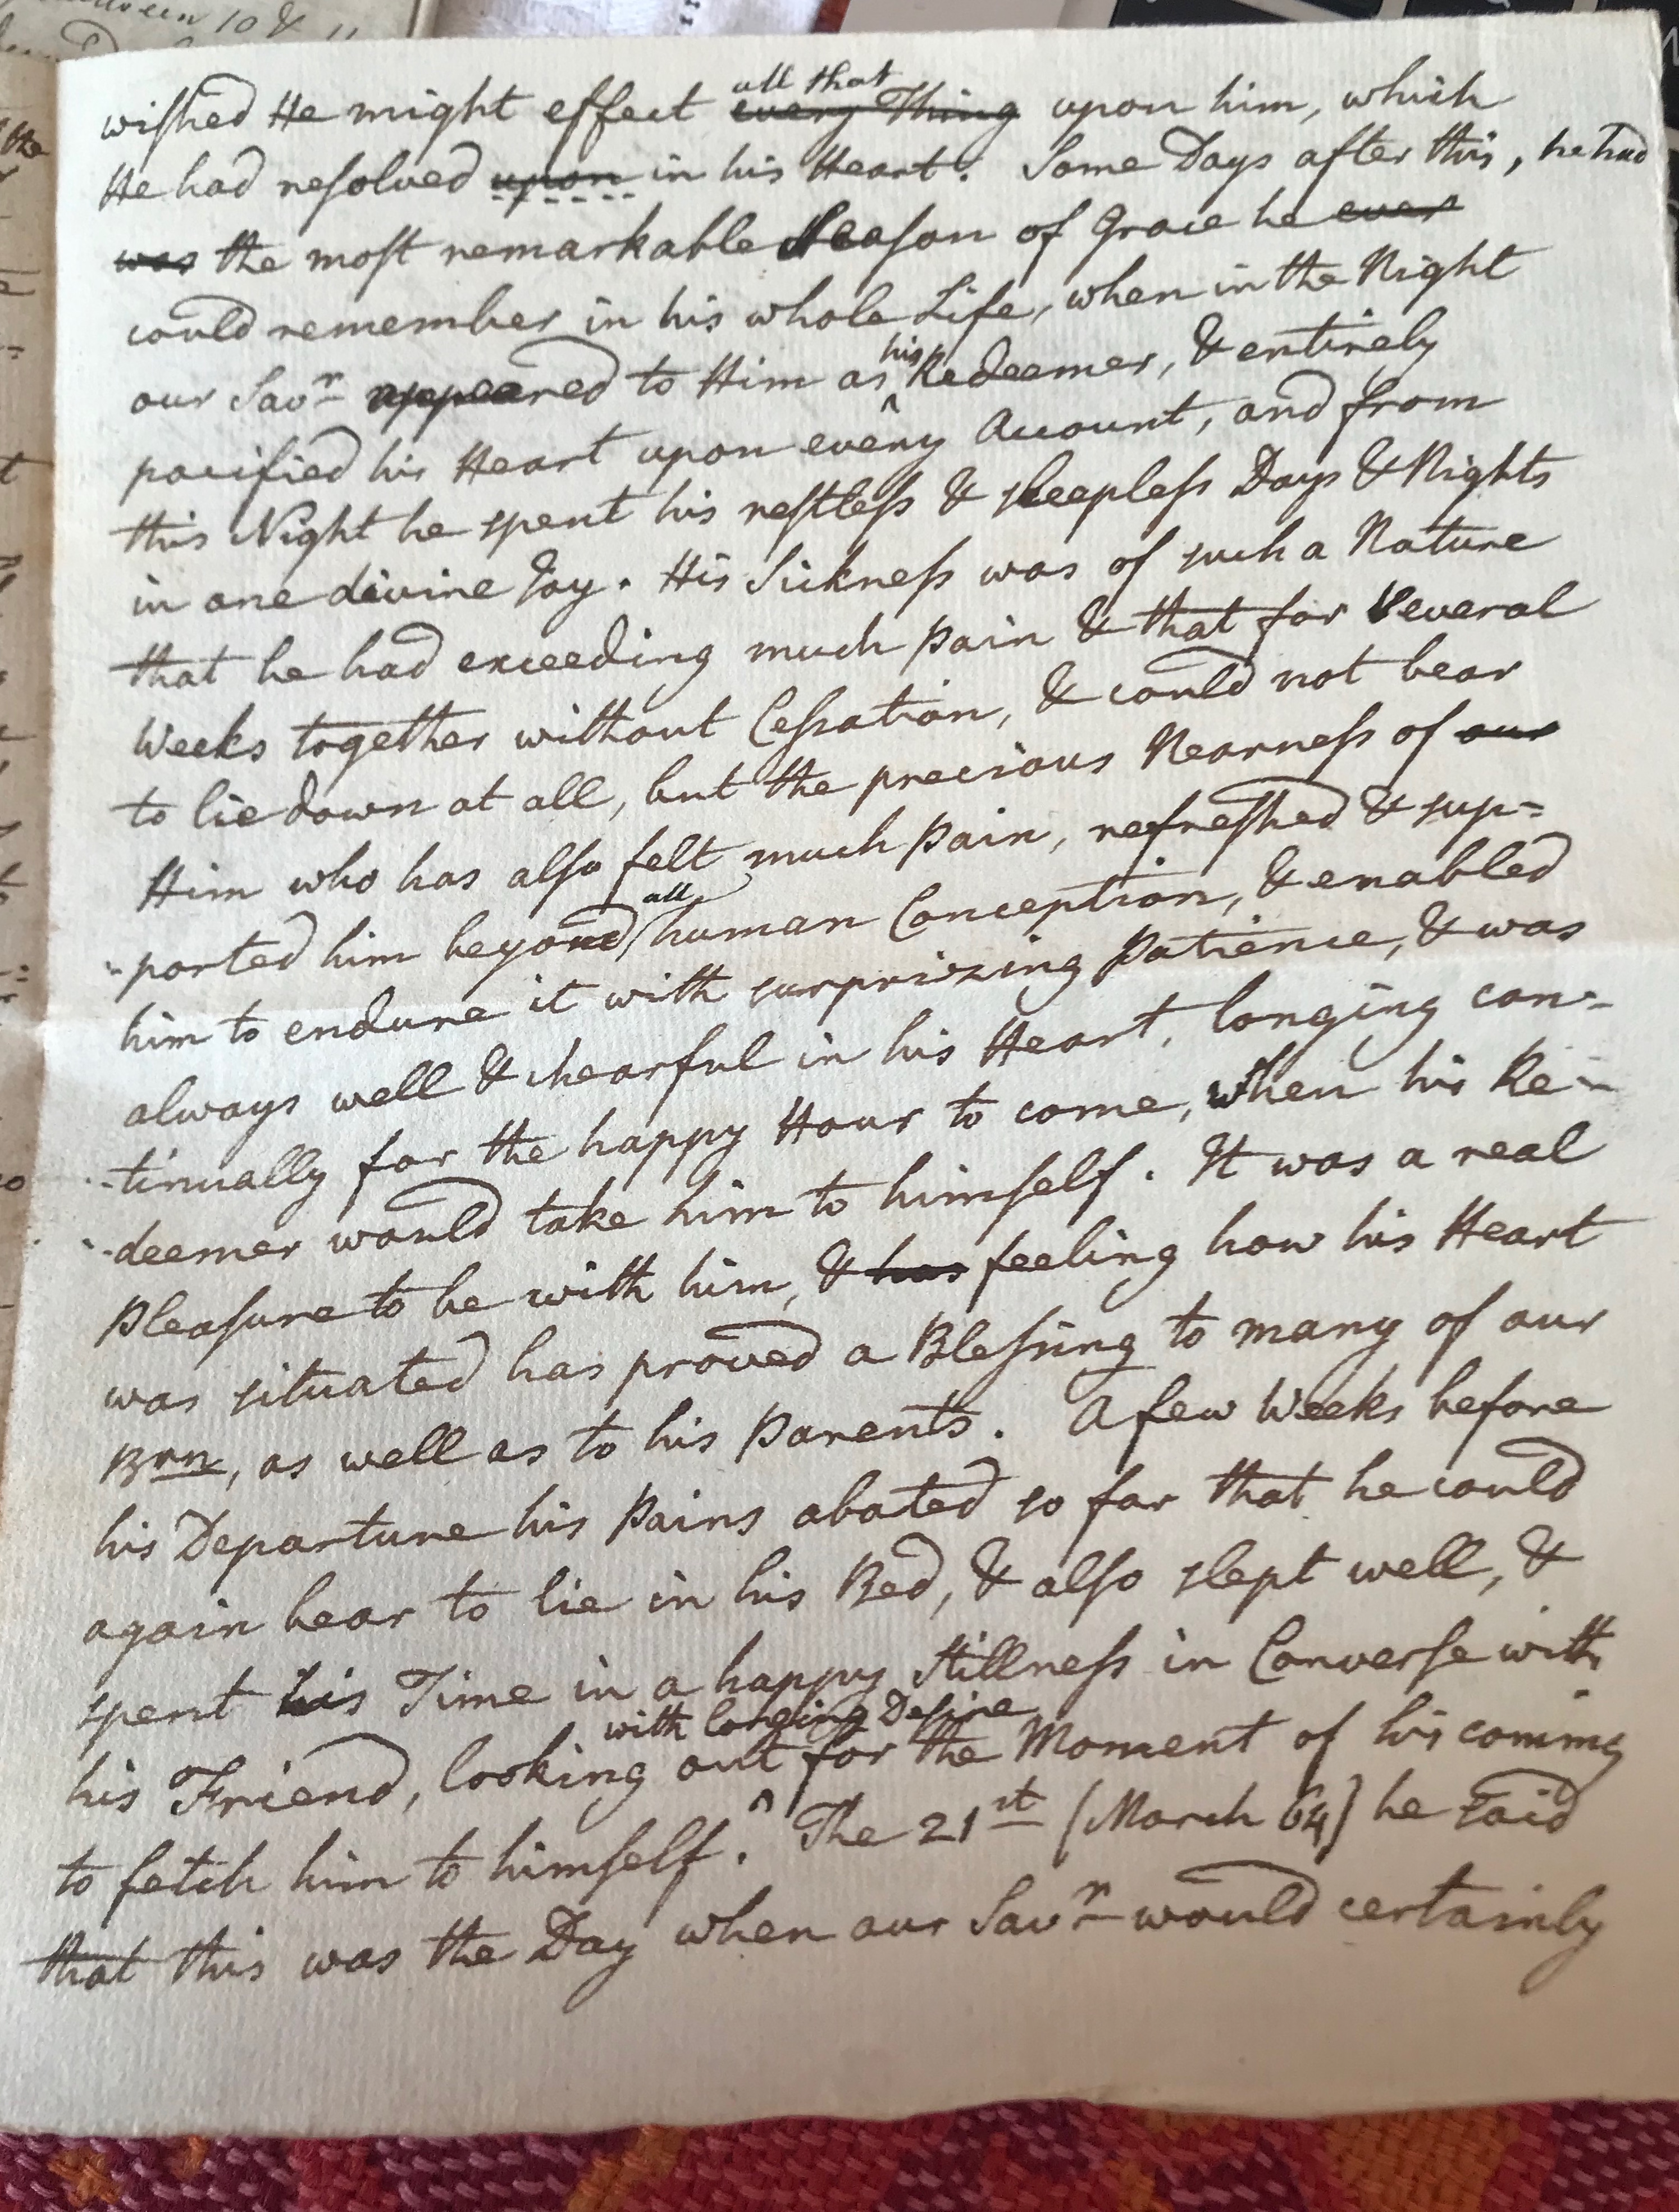 ween 10 & 11
the
wished He might effect ~~every Thing~~ all that upon him, which
He had resolved ~~upon~~ in his Heart. Some Days after this, he had
~~was~~ the most remarkable Season of Grace he ~~ever~~
could remember in his whole Life, when in the Night
our Savr appeared to Him as his Redeemer, & entirely
pacified his Heart upon every Account, and from
this Night he spent his restless & sleepless Days & Nights
in one divine Joy. His Sickness was of such a Nature
that he had exceeding much Pain & that for several
Weeks together without Cessation, & could not bear
to lie down at all, but the precious Nearness of ~~our~~
Him who has also felt much Pain, refreshed & sup=
-ported him beyond all human Conception, & enabled
him to endure it with surprizing Patience, & was
always well & chearful in his Heart, longing con=
-tinually for the happy Hour to come, when his Re=
-deemer would take him to himself. It was a real
Pleasure to be with him, & ~~has~~ feeling how his Heart
was situated has proved a Blessing to many of our
Brn, as well as to his Parents. A few Weeks before
his Departure his Pains abated so far that he could
again bear to lie in his Bed, & also slept well, &
spent his Time in a happy Stillness in Converse with
his Friend, looking out with longing Desire for the Moment of his coming
to fetch him to himself. The 21st (March 64) he said
that this was the Day when our Savr would certainly